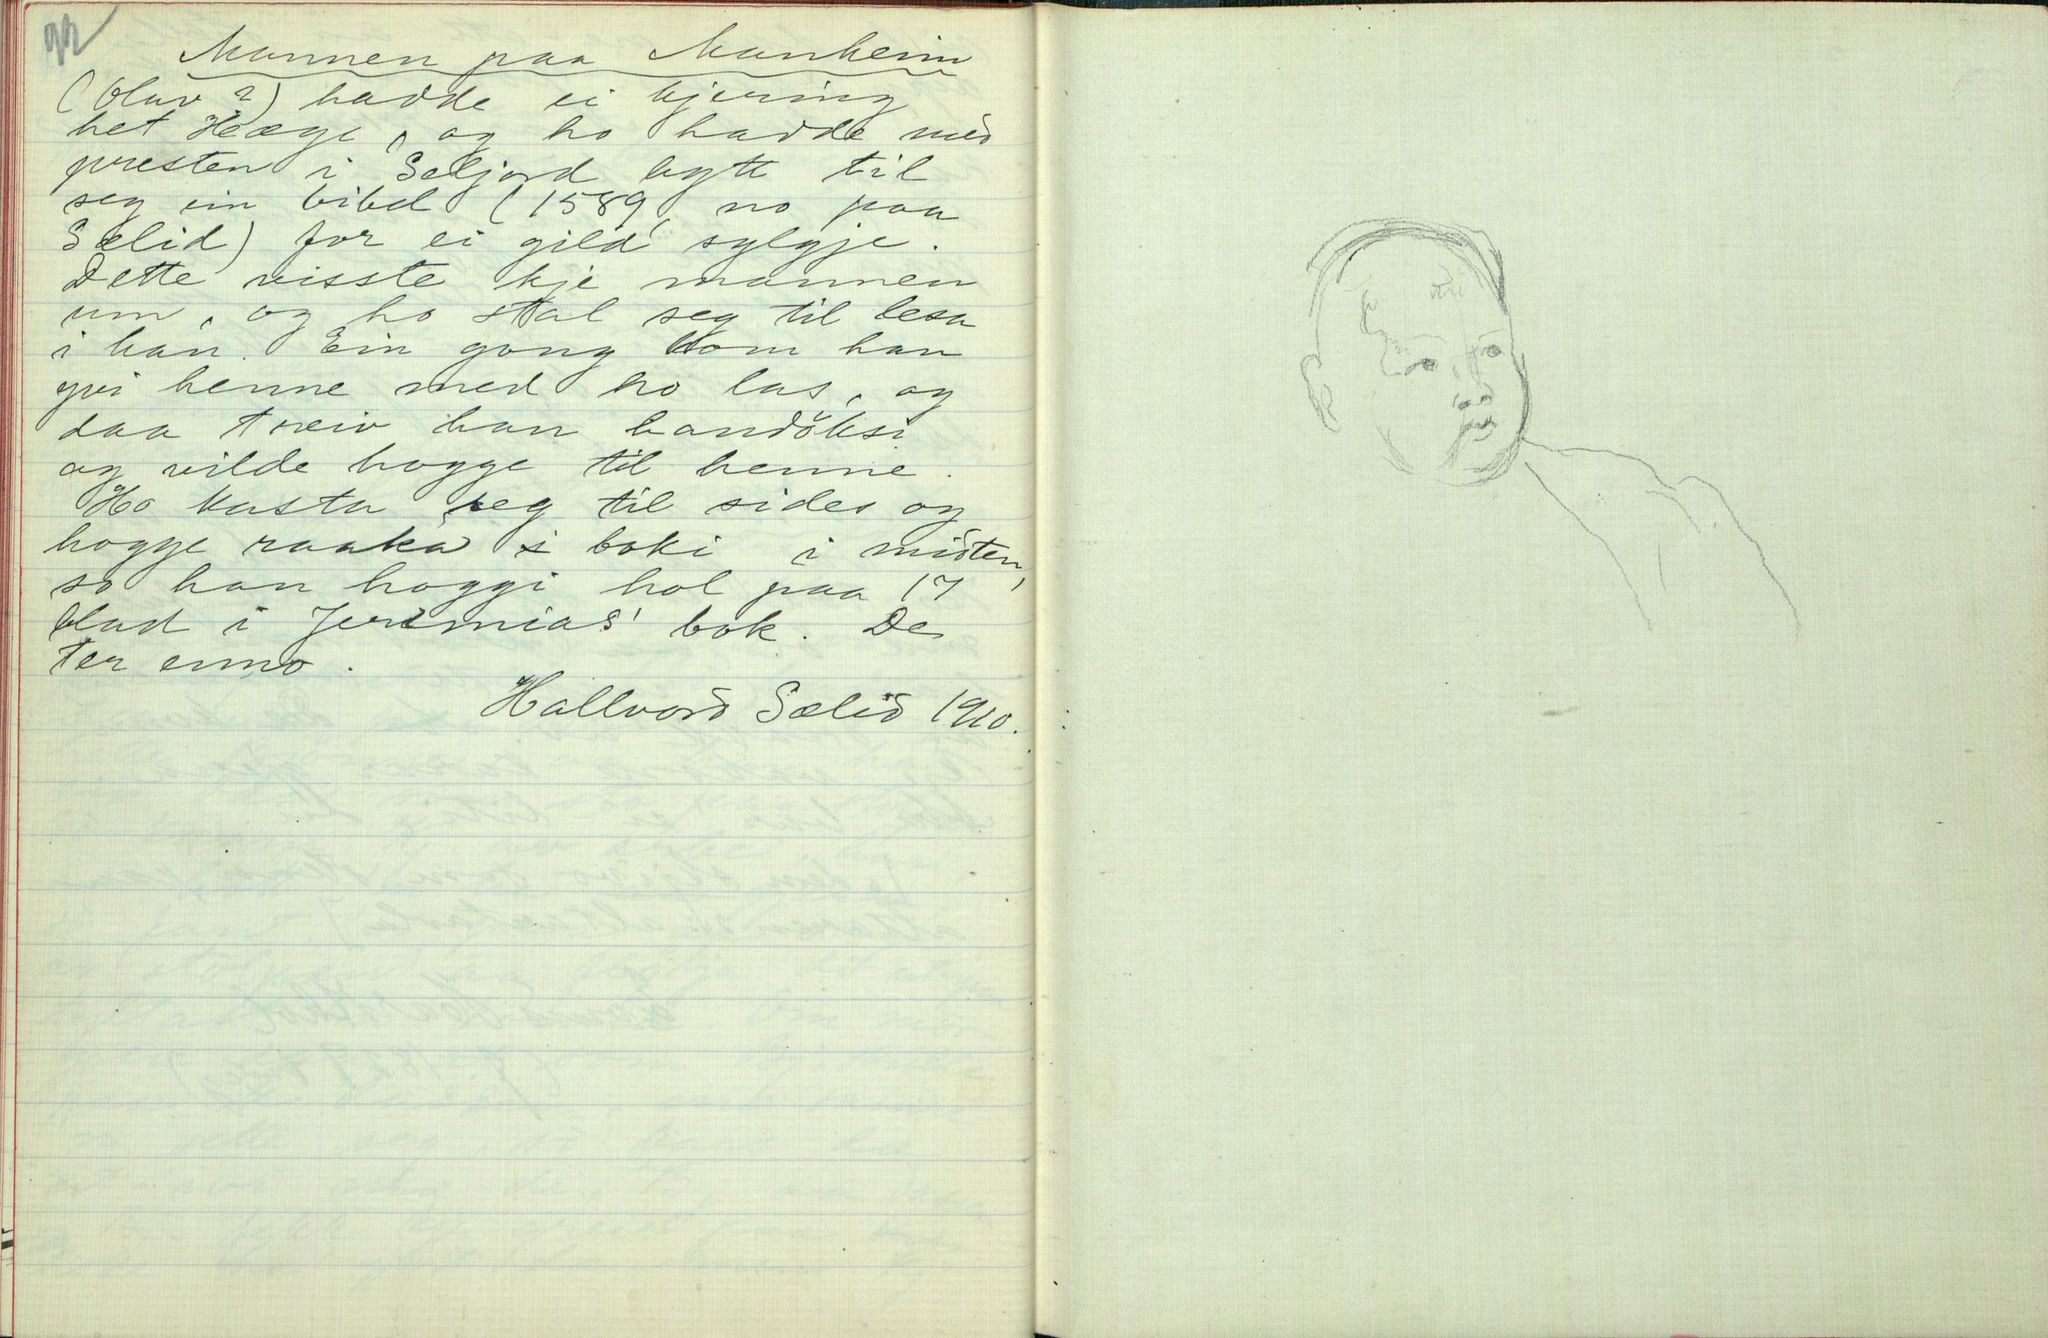 92
Mannen paa Manheim
(Olav?) hadde ei kjering
het Hæge, og ho hadde med
presten i Seljord bytt til
seg ein bibel (1589, no paa
Sælid) for ei gild sylgje.
Dette visste kje mannen
um, og ho stal seg til lesa
i han. Ein gong kom han
yvi henne med ho las, og
daa treiv han handöksi
og vilde hogge til henne.
Ho kasta seg til sides og
hogge raaka i boki i midten,
so han hoggi hol paa 17
blad i Jeremias' bok. De
ter enno.
Hallvord Sælid 1910.